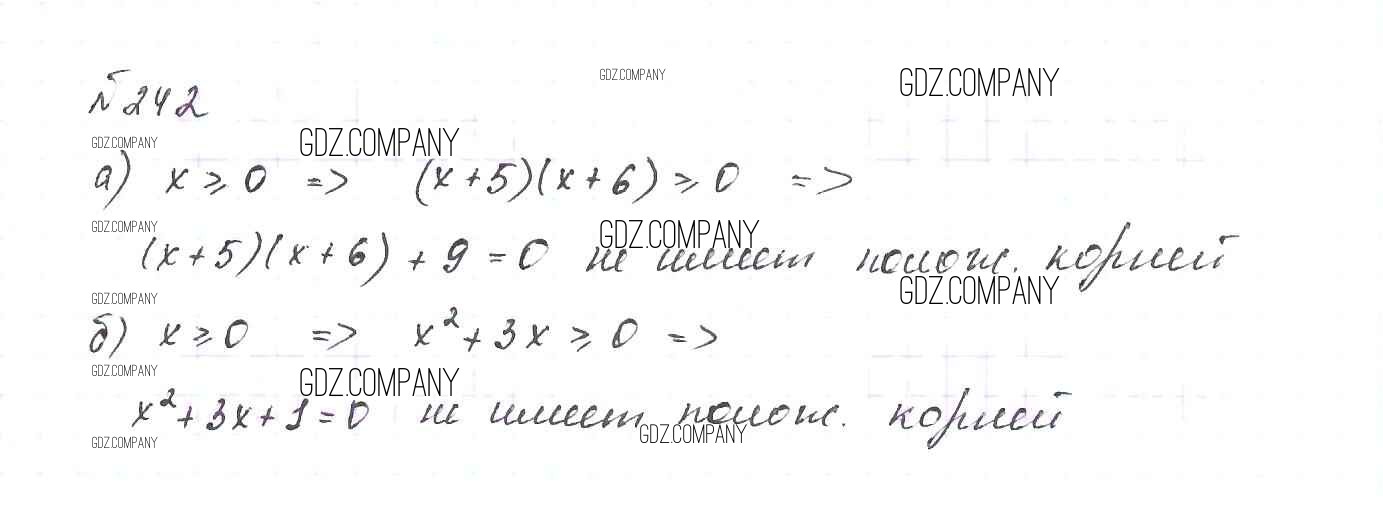 GDZ.COMPANY
GDZ.COMPANY
№ 242
GDZ.COMPANY
GDZ.COMPANY
а) x ≥ 0 => (x+5)(x+6) ≥ 0 =>
GDZ.COMPANY
GDZ.COMPANY
(x+5)(x+6) + 9 = 0 не имеет полож. корней
GDZ.COMPANY
GDZ.COMPANY
б) x ≥ 0 => x² + 3x ≥ 0 =>
GDZ.COMPANY
GDZ.COMPANY
x² + 3x + 1 = 0 не имеет полож. корней
GDZ.COMPANY
GDZ.COMPANY